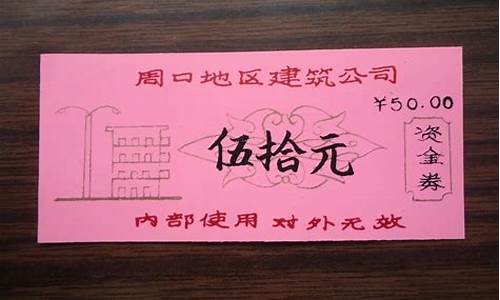 周口地区建筑公司
¥50.00
伍拾元
资金券
内部使用 对外无效